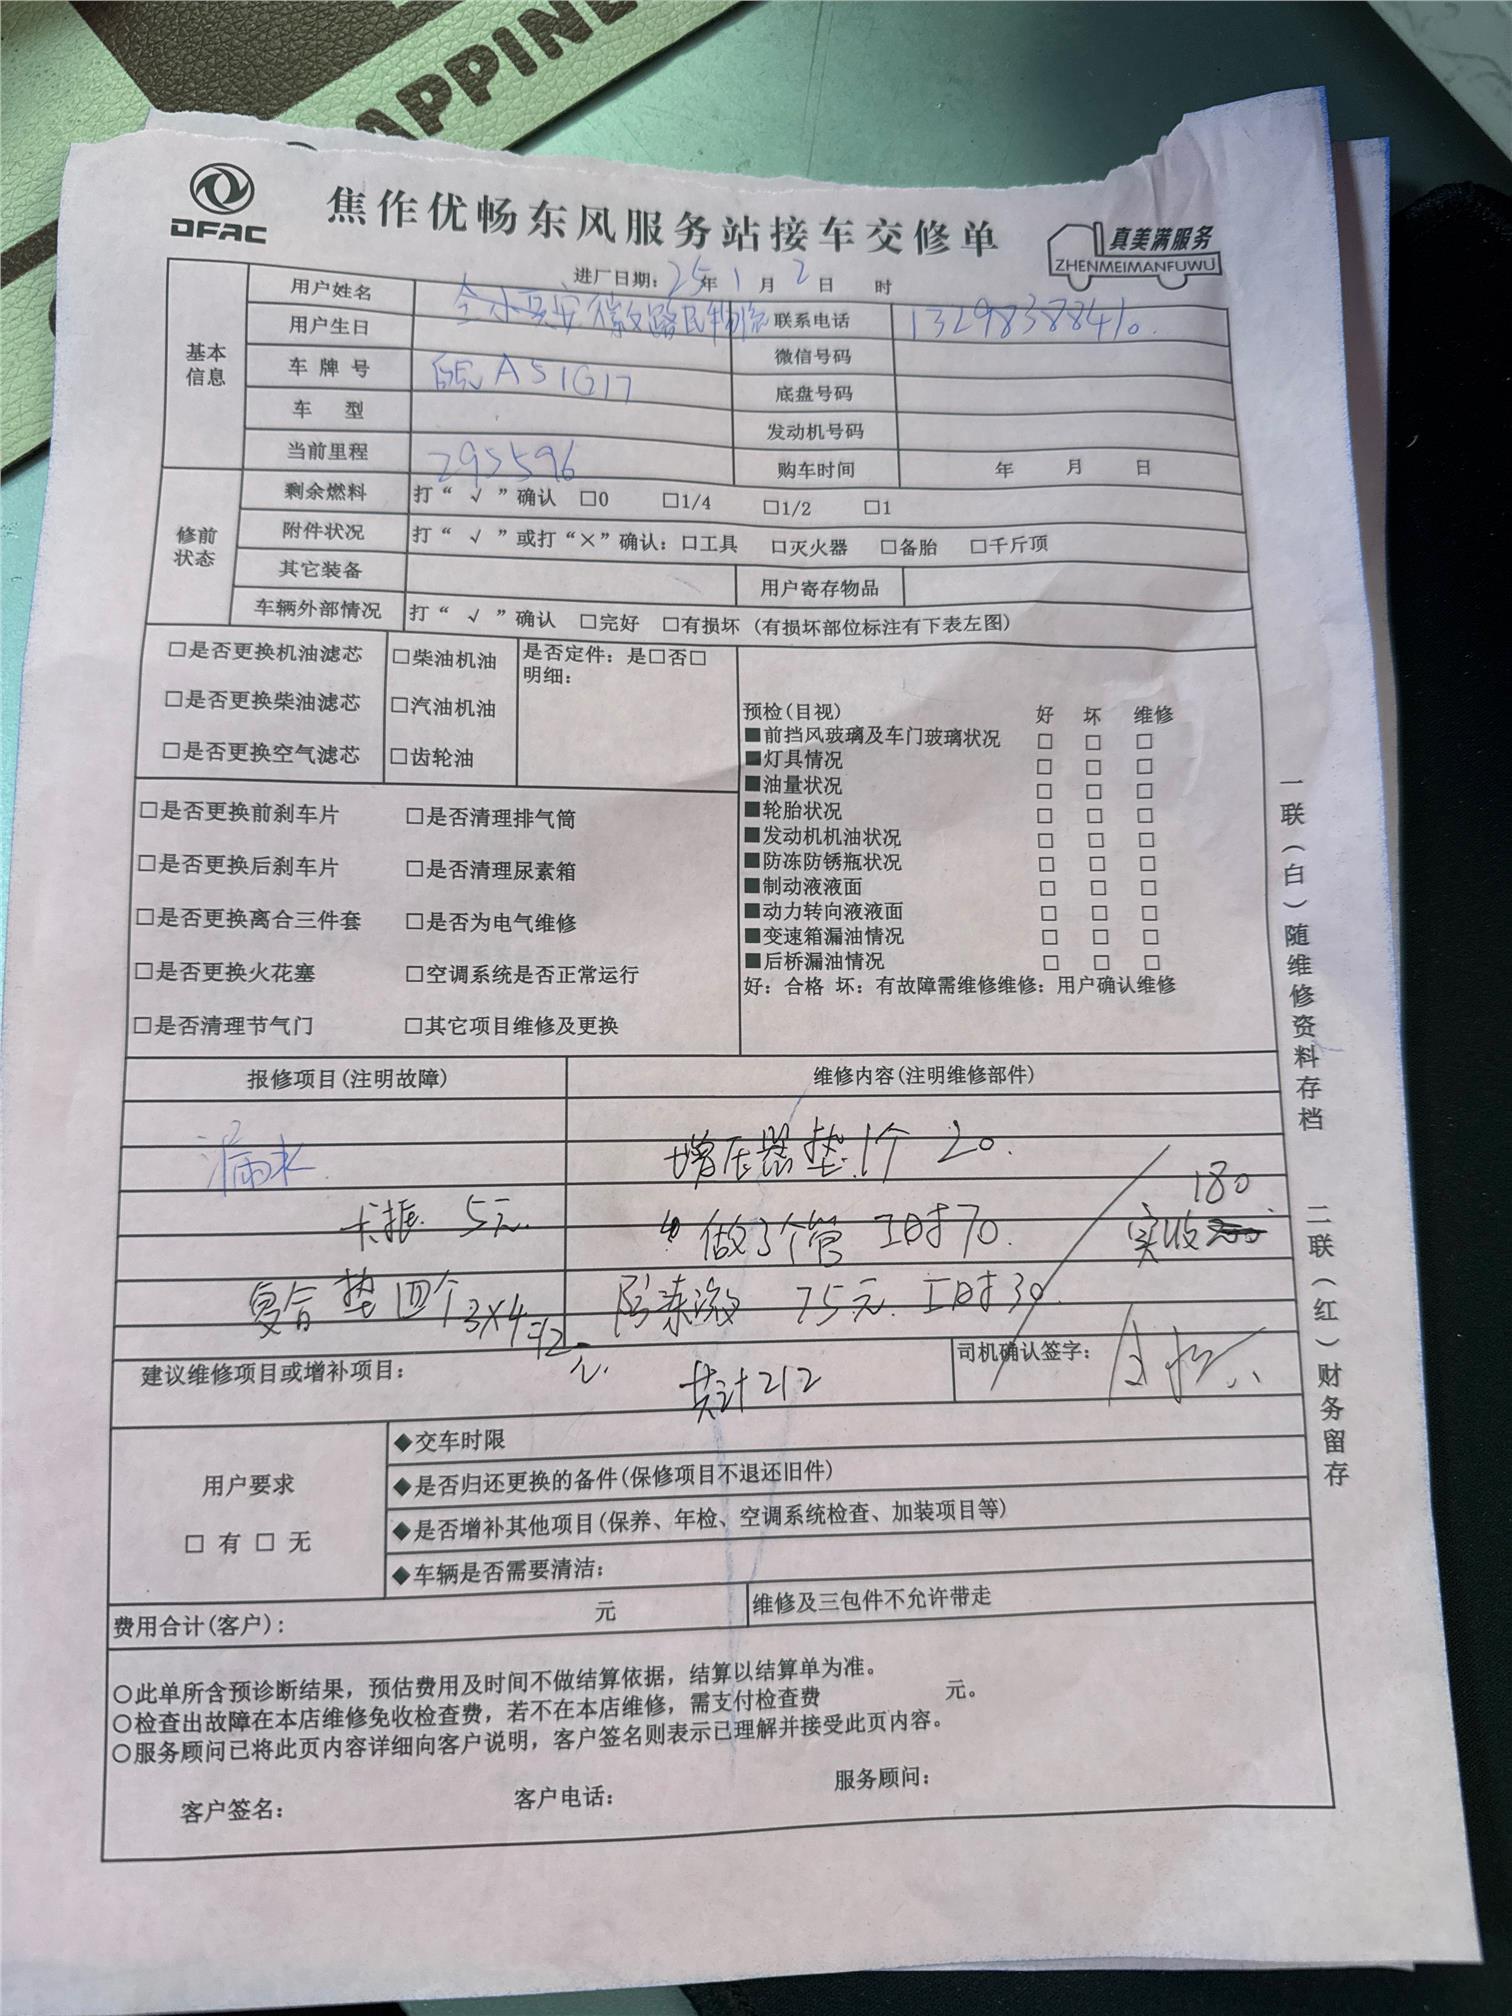 APPINE
DFAC
焦作优畅东风服务站接车交修单
真美满服务
ZHENMEIMANFUWU
进厂日期：25年1月2日 时
基本信息
用户姓名
联系电话 13298388410.
用户生日
微信号码
车牌号 皖A51G17
底盘号码
车 型
发动机号码
当前里程 295596
购车时间 年 月 日
修前状态
剩余燃料 打“√”确认 □0 □1/4 □1/2 □1
附件状况 打“√”或打“×”确认：□工具 □灭火器 □备胎 □千斤顶
其它装备 用户寄存物品
车辆外部情况 打“√”确认 □完好 □有损坏 (有损坏部位标注有下表左图)
□是否更换机油滤芯 □柴油机油
□是否更换柴油滤芯 □汽油机油
□是否更换空气滤芯 □齿轮油
是否定件：是□否□
明细：
□是否更换前刹车片 □是否清理排气筒
□是否更换后刹车片 □是否清理尿素箱
□是否更换离合三件套 □是否为电气维修
□是否更换火花塞 □空调系统是否正常运行
□是否清理节气门 □其它项目维修及更换
预检(目视) 好 坏 维修
■前挡风玻璃及车门玻璃状况 □ □ □
■灯具情况 □ □ □
■油量状况 □ □ □
■轮胎状况 □ □ □
■发动机机油状况 □ □ □
■防冻防锈瓶状况 □ □ □
■制动液液面 □ □ □
■动力转向液液面 □ □ □
■变速箱漏油情况 □ □ □
■后桥漏油情况 □ □ □
好：合格 坏：有故障需维修维修：用户确认维修
报修项目(注明故障) 维修内容(注明维修部件)
漏水 增压器垫1个 20.
180
卡振 5元. 做了个管 工时70. 实收
复合垫四个3×4=12元. 75元. 工时30.
建议维修项目或增补项目： 共计212
司机确认签字：
用户要求
□ 有 □ 无
◆交车时限
◆是否归还更换的备件(保修项目不退还旧件)
◆是否增补其他项目(保养、年检、空调系统检查、加装项目等)
◆车辆是否需要清洁：
费用合计(客户)： 元 维修及三包件不允许带走
○此单所含预诊断结果，预估费用及时间不做结算依据，结算以结算单为准。
○检查出故障在本店维修免收检查费，若不在本店维修，需支付检查费 元。
○服务顾问已将此页内容详细向客户说明，客户签名则表示已理解并接受此页内容。
客户签名： 客户电话： 服务顾问：
一联（白）随维修资料存档
二联（红）财务留存